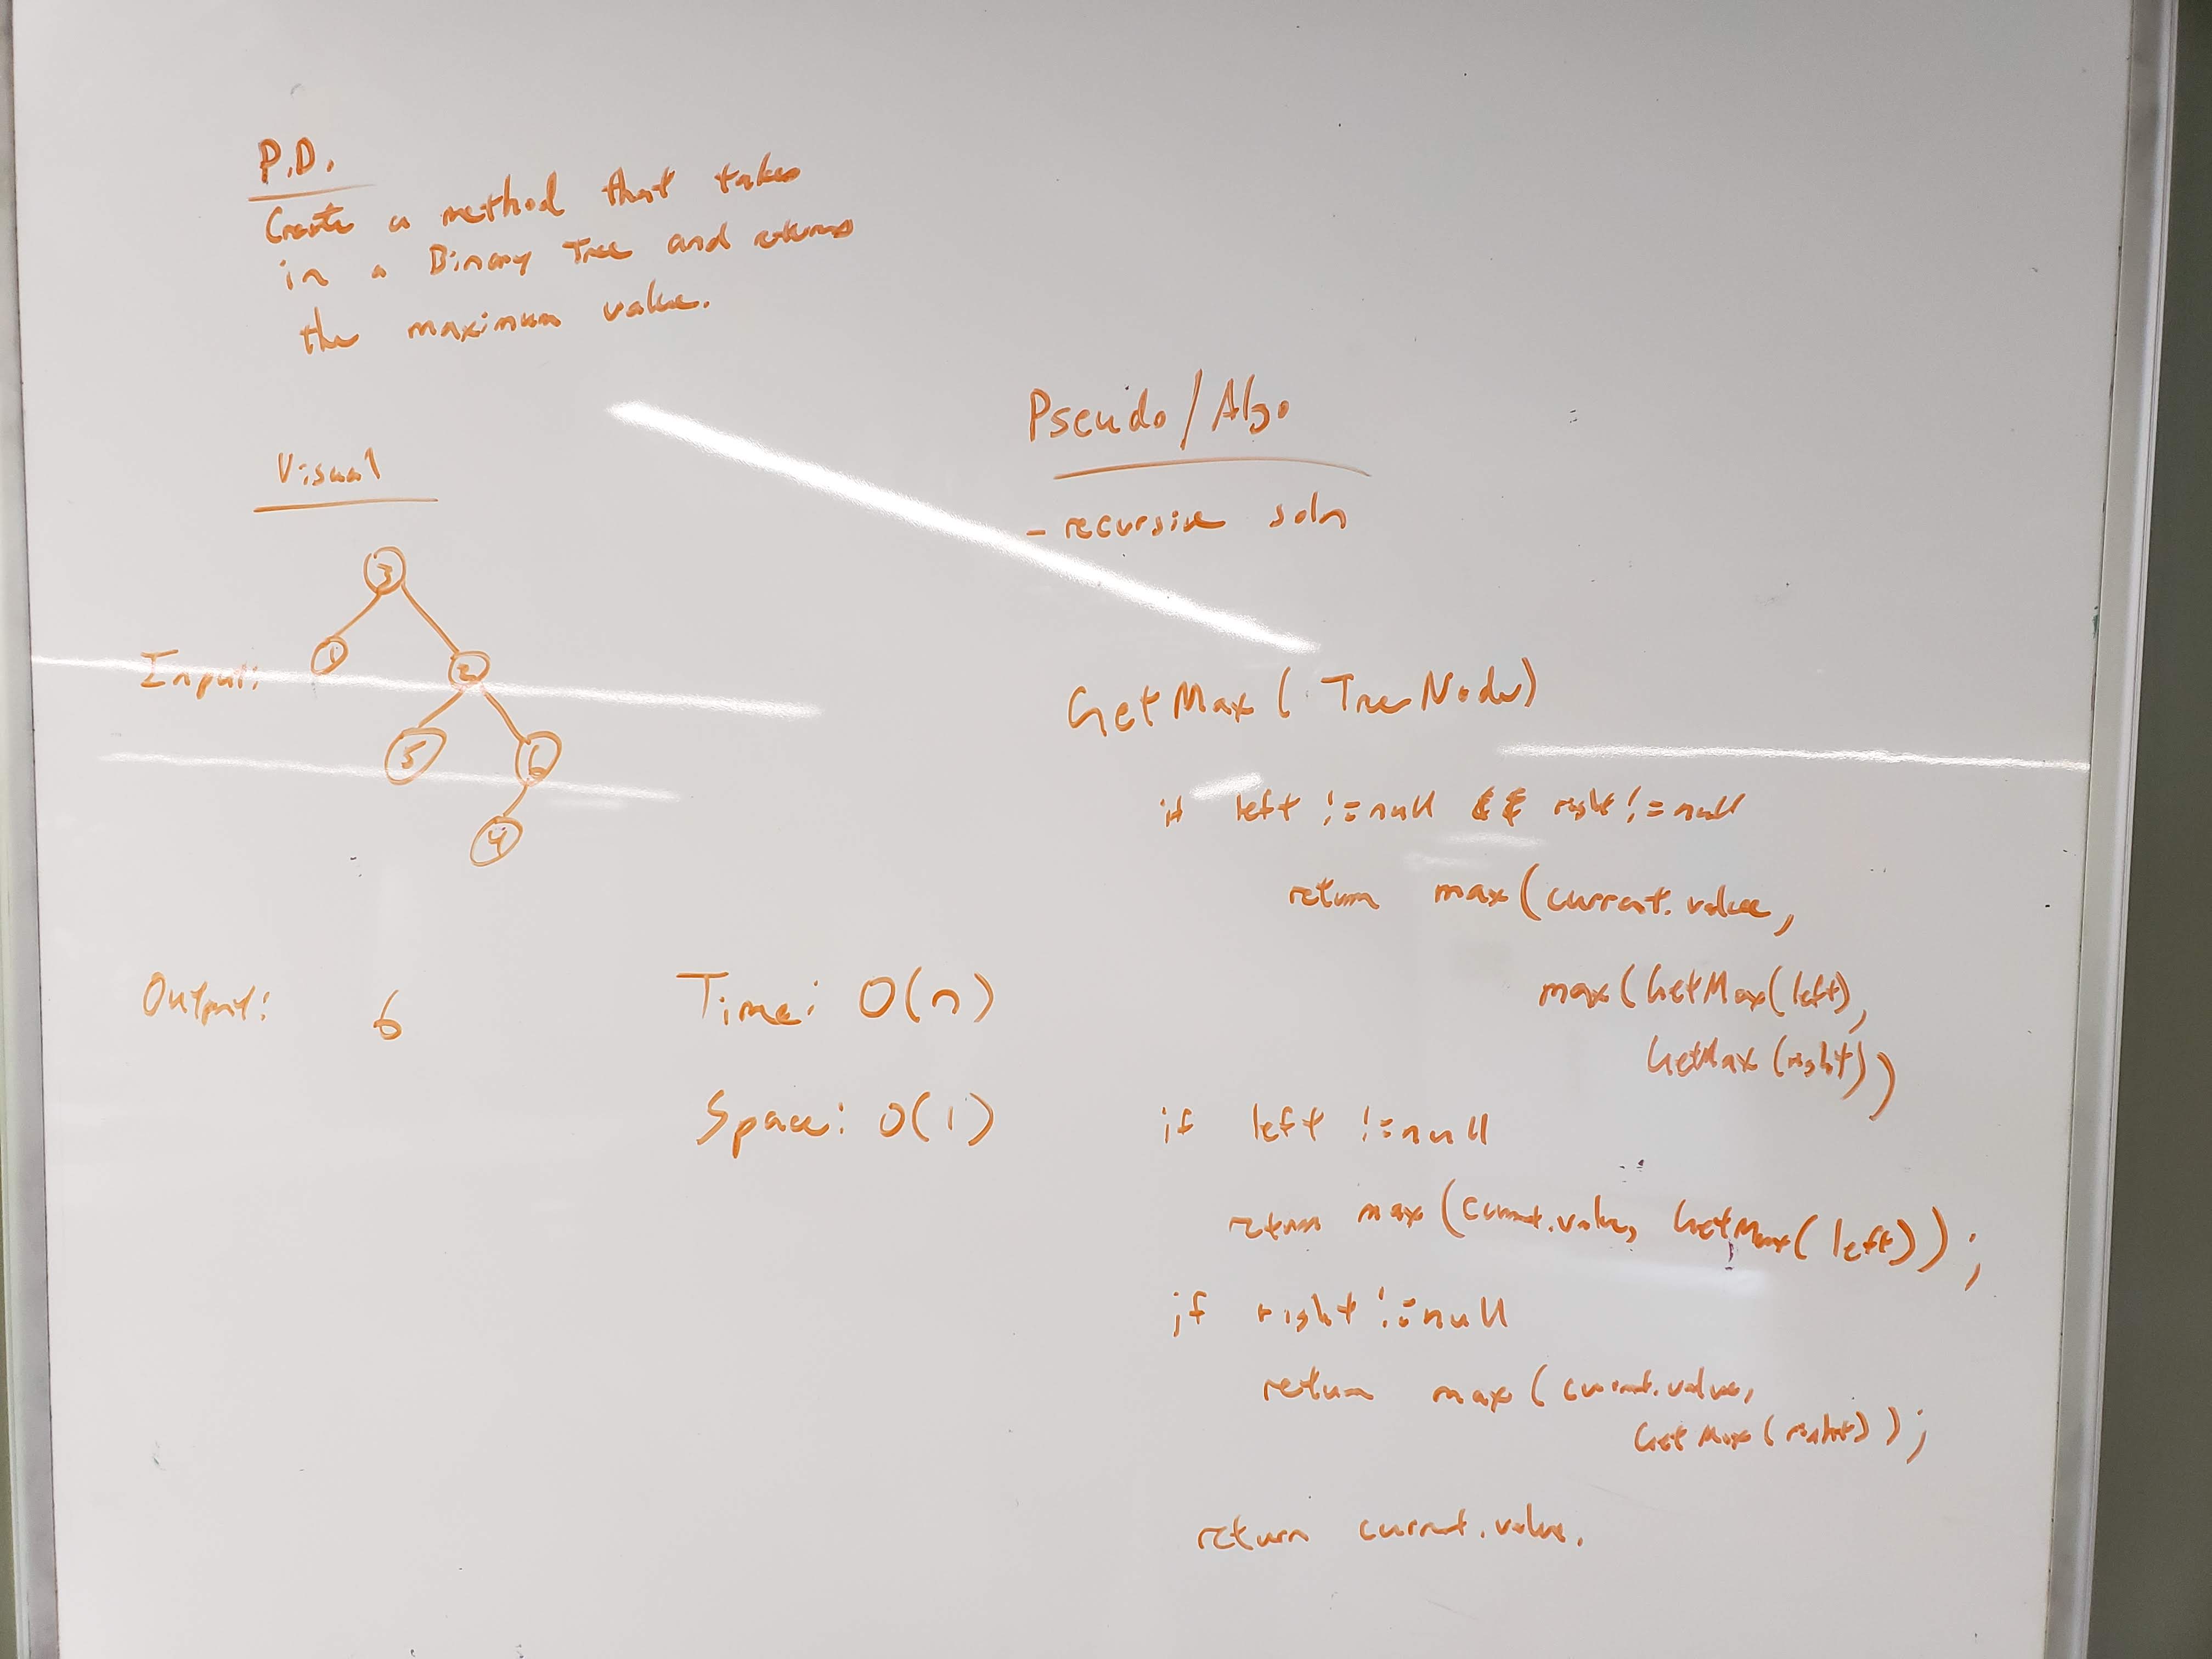 P.D.
Create a method that takes
in a Binary Tree and returns
the maximum value.
Visual
3
1
2
Input:
5
6
4
Output: 6
Time: O(n)
Space: O(1)
Pseudo/Algo
- recursive soln
GetMax( TreeNode)
if left != null && right != null
return max(current.value,
max(GetMax(left),
GetMax(right))
if left != null
return max(current.value, GetMax(left));
if right != null
return max(current.value,
GetMax(right));
return current.value.